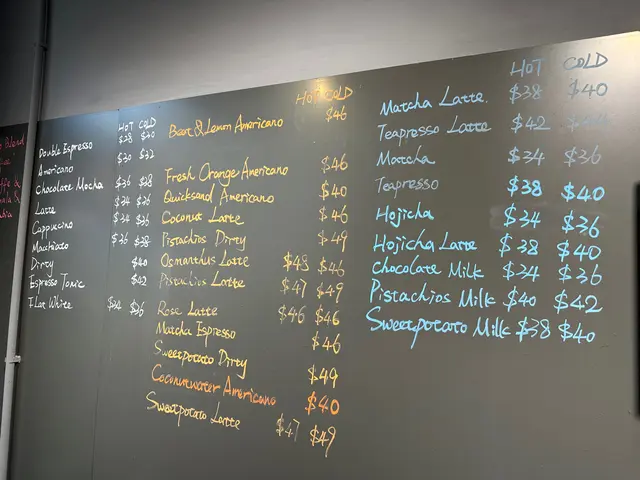 HOT COLD
Double Espresso
Americano $30 $32
Chocolate Mocha $36 $38
Latte $34 $36
Cappuccino $34 $36
Machiato $36 $38
Dirty $40
Espresso Tonic $42
Flat White $34 $36
HOT COLD
Beer & Lemon Americano $46
Fresh Orange Americano $46
Quicksand Americano $40
Coconut Latte $46
Pistachios Dirty $49
Osmanthus Latte $46
Pistachios Latte $47 $49
Rose Latte $46 $46
Matcha Espresso $46
Sweetpotato Dirty $49
Coconutwater Americano $40
Sweetpotato Latte $47 $49
HOT COLD
Matcha Latte $38 $40
Teapresso Latte $42
Matcha $34 $36
Teapresso $38 $40
Hojicha $34 $36
Hojicha Latte $38 $40
Chocolate Milk $34 $36
Pistachios Milk $40 $42
Sweetpotato Milk $38 $40